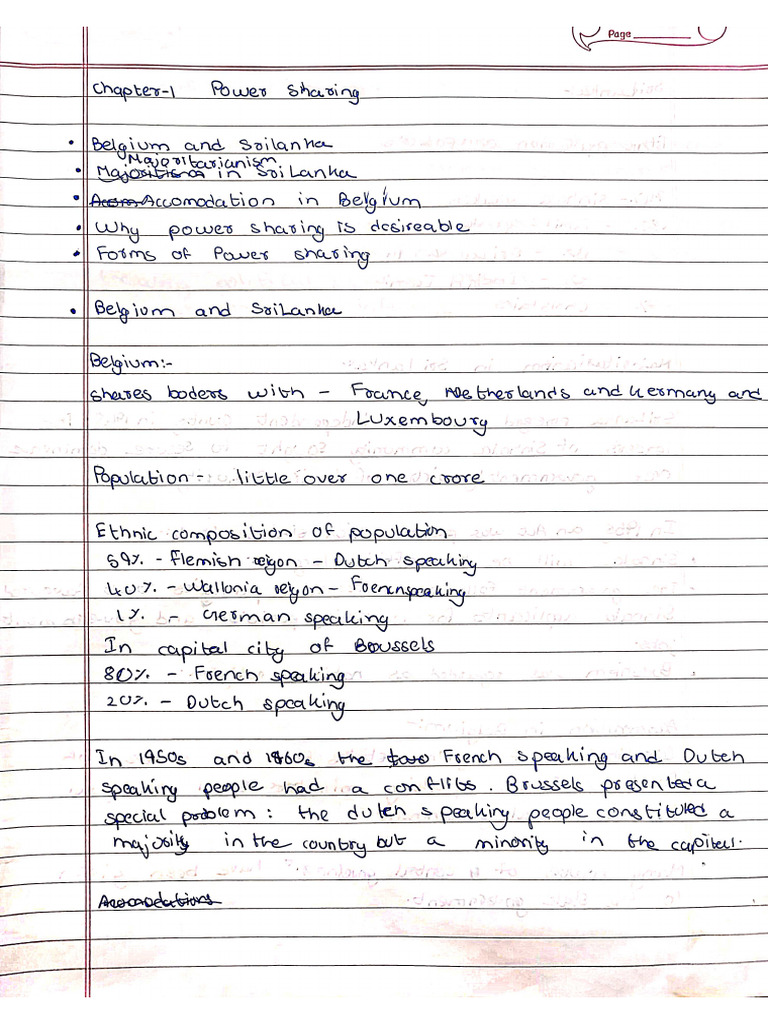 Page
Chapter-1 Power Sharing
• Belgium and Srilanka
Majoritarianism
• in SriLanka
• Accomodation in Belgium
• Why power sharing is desireable
• Forms of Power sharing
• Belgium and SriLanka
Belgium:-
shares boders with - France, Netherlands and Germany and
Luxembourg
Population - little over one crore
Ethnic composition of population
59% - Flemish reigon - Dutch speaking
40% - Wallonia reigon - Frenchspeaking
1% - German speaking
In capital city of Brussels
80% - French speaking
20% - Dutch speaking
In 1950s and 1960s the French speaking and Dutch
speaking people had a conflits. Brussels presented a
special problem: the dutch speaking people constituted a
majority in the country but a minority in the capital.